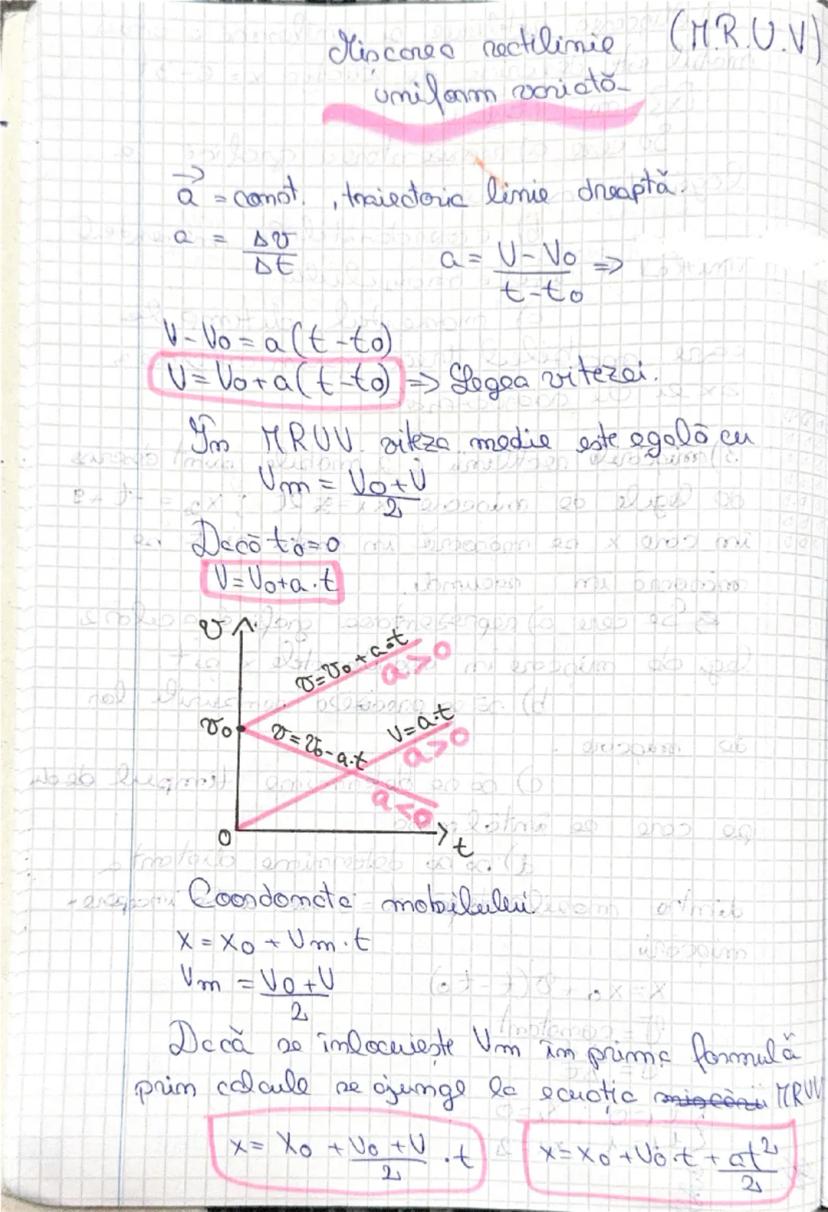 Mișcarea rectilinie (M.R.U.V)
uniform variată
a⃗ = const. , traiectoria linie dreaptă.
a = Δv/Δt a = V-V₀/t-t₀ =>
V-V₀ = a(t-t₀)
V = V₀+a(t-t₀) => Legea vitezei.
În MRUV viteza medie este egală cu
Vm = V₀+V/2
Dacă t₀=0
V=V₀+a·t
v
v=v₀+a·t
a>0
v₀
v=v₀-a·t
V=a·t
a>0
a<0
0
t
Coordonata mobilului
x = x₀ + Vm·t
Vm = V₀+V/2
Dacă se înlocuiește Vm în prima formulă
prin calcule se ajunge la ecuația mișcării MRUV
x = x₀ + V₀+V/2 · t x=x₀+V₀·t+at²/2